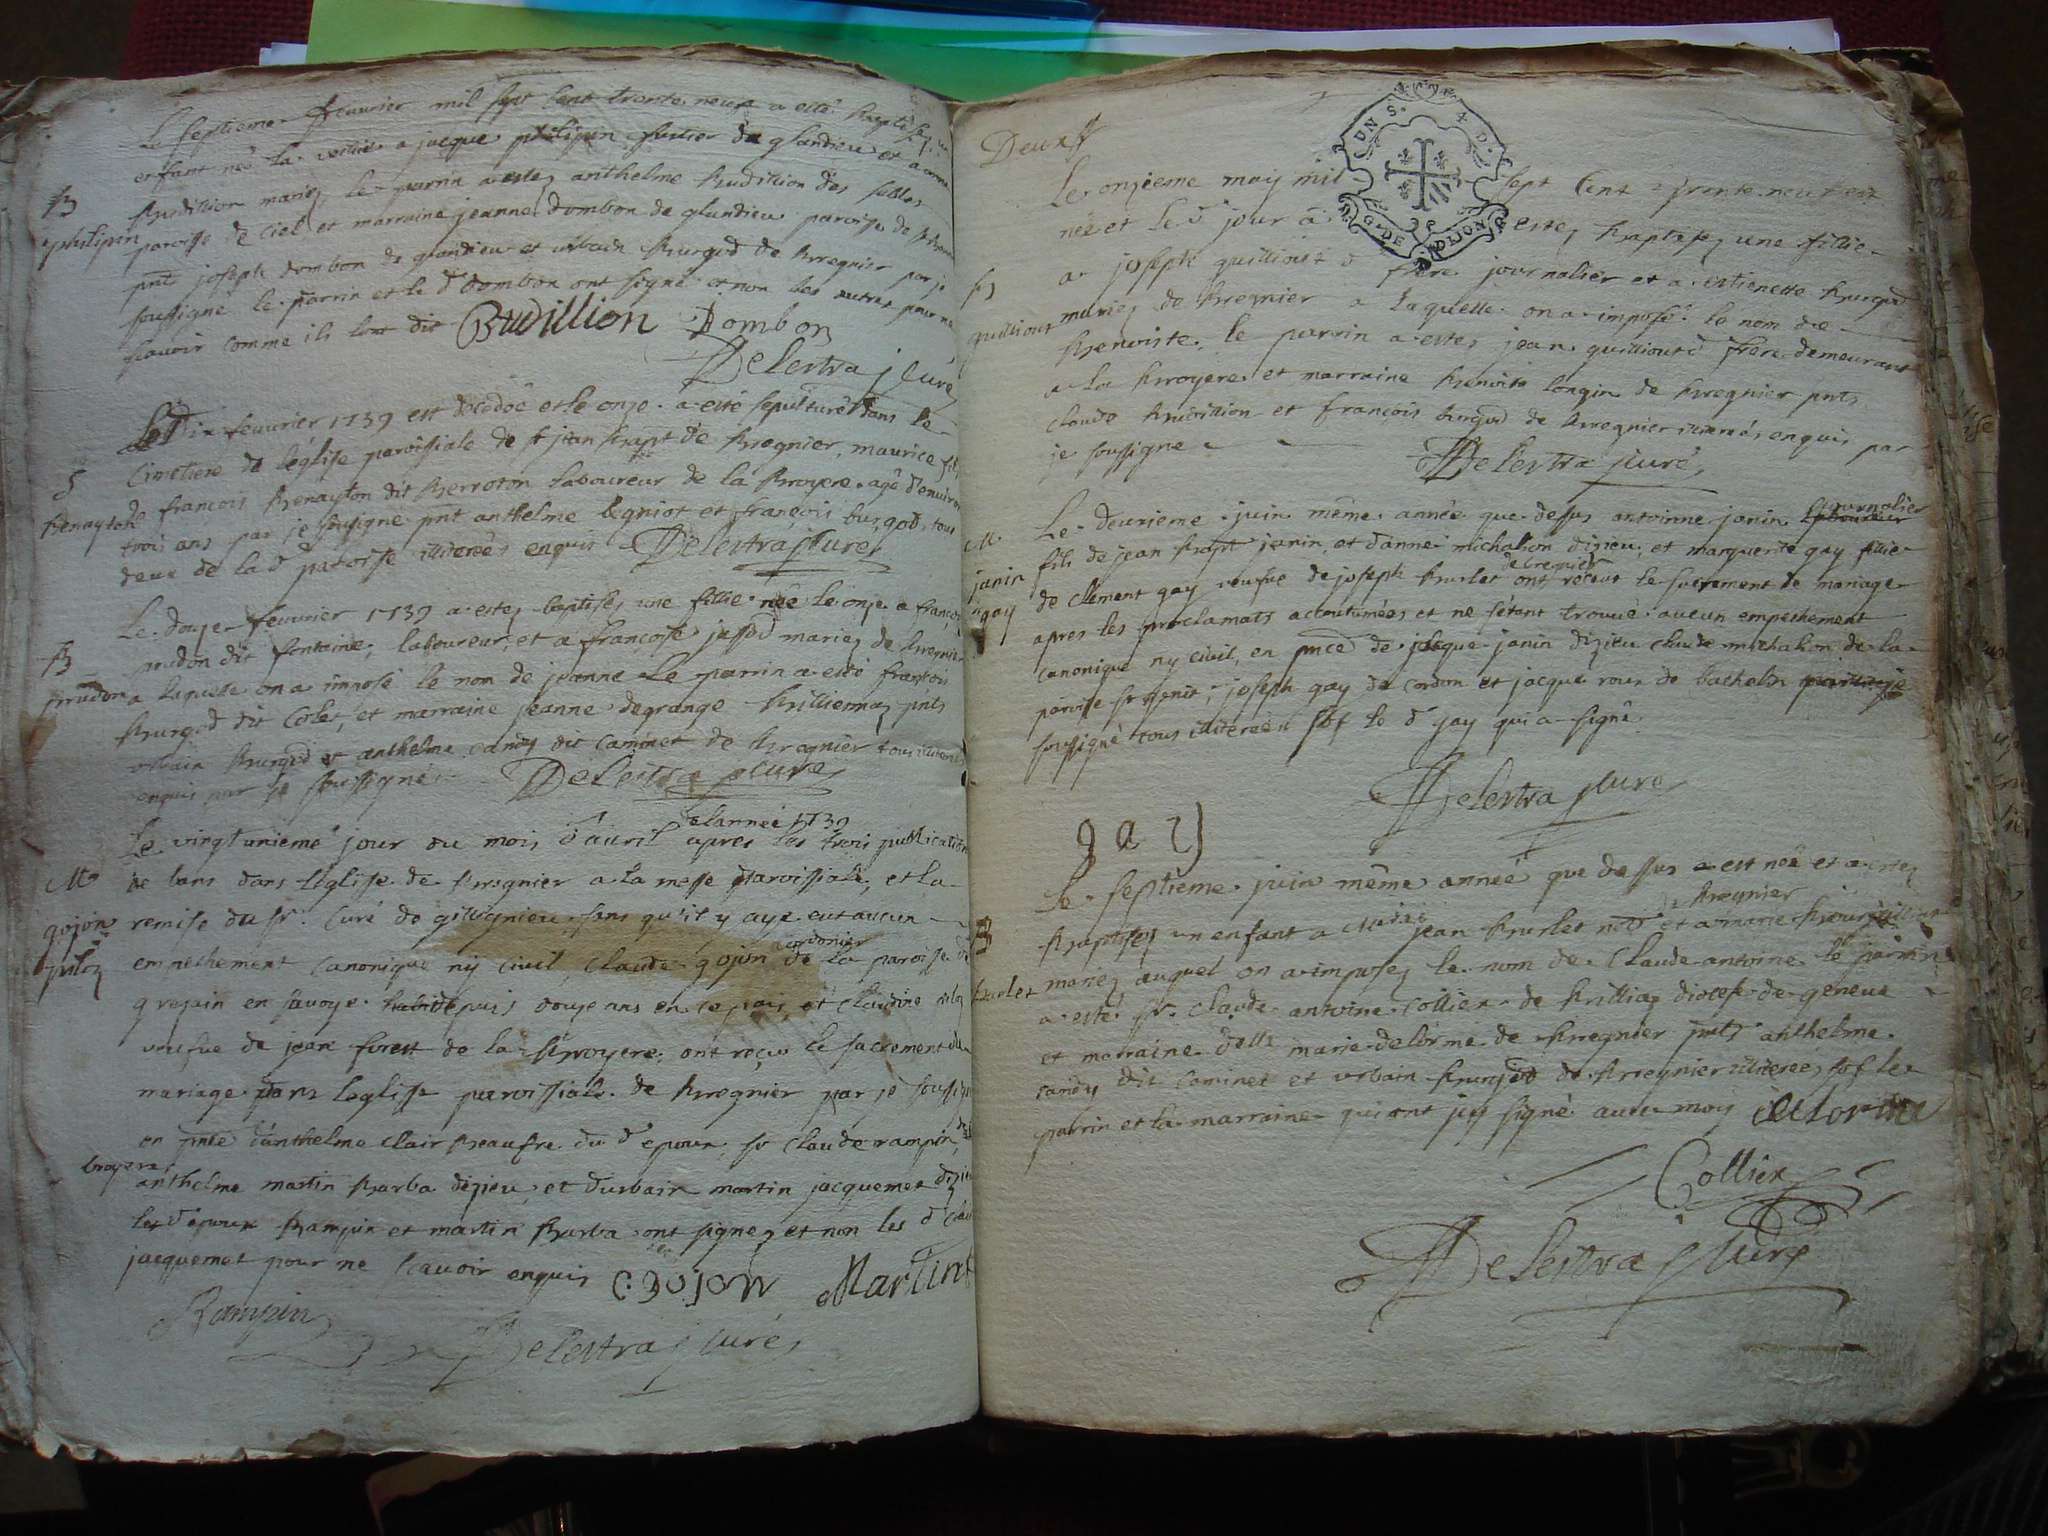 Le septieme feuvrier mil sept cent trente neuf a esté baptisé un
enfant née la veille a jacque philipin fustier de glandieu et a
Budillion mariez le parrin a estez anthelme Budillion des sables
B
philipin
paroisse de Ciel et marraine jeanne dombon de glandieu paroisse de
pnt joseph dombon de glandieu et urbain burgod de bregnier par je
soussigné le parrin et le d dombon ont signé et non les autres pour ne
scavoir comme ils l'ont dit Budillion Dombon
Delestra curé
Le Dix feuvrier 1739 est decedée et le onze a esté sepulturé dans le
Cimetiere de l'eglise paroissiale de st jean bapt de bregnier, maurice fils
S
benayton
de françois benayton dit berroton laboureur de la bruyere agé d'environ
trois ans par je soussigne pnt anthelme beguiot et françois burgod, tous
deux de la d paroisse illiterés enquis Delestra curé
Le douze feuvrier 1739 a estez baptisez une fillie née le onze a françois
B
prudon
prudon dit fontaine, laboureur, et a françoise jassod mariez de bregnier
a laquelle on a imposé le nom de jeanne Le parrin a esté françois
burgod dit Colet, et marraine jeanne degrange billiemaz pnts
urbain burgod et anthelme candy dit caminet de bregnier tous illiteres
enquis par je soussigné Delestra curé
de l'année 1739
Le vingtunieme jour du mois d'avril apres les trois publication
M
gojon
piloz
de bans dans l'eglise de bregnier a la messe paroissiale, et la
remise du sr. Curé de gelignieu, sans qu'il y aye eut aucun
cordonier
empechement canonique ny civil, Claude gojon de la paroisse de
gresain en savoye depuis douze ans en ce pais, et Claudine piloz
veufue de jean forest de la bruyere, ont reçu le sacrement de
mariage dans l'eglise paroissiale de bregnier par je soussigné
en pnce d'anthelme Clair beaufre du d epoux, sr Claude rampin, de la
bruyere
anthelme martin barba dizieu, et d'urbain martin jacquemet dizieu
les d epoux Rampin et martin Barba ont signez et non les d Clair
jacquemet pour ne scavoir enquis C. gojon Martin
Rampin
Delestra curé
Deux
Le onzieme may mil sept cent trente neuf est
née et le d jour a estez baptisez une fillie
B
quilliout
a joseph quilliout d frere journalier et a estienette burgod
mariez de bregnier a laquelle on a imposé le nom de
benoiste, le parrin a estez jean quilliout d frere demeurant
a la bruyere et marraine benoite longin de bregnier pnts
claude budillion et françois burgod de bregnier illiterés enquis par
je soussigne
Delestra curé
Le deuxieme juin même année que dessus antoinne janin laboureur journalier
M
janin
gay
fils de jean bapt janin, et d'anne michalion dizieu, et marguerite gay fillie
de bregnier
de clement gay veufue de joseph burlet ont receut le sacrement de mariage
apres les proclamats accoutumées et ne s'étant trouvé aucun empechement
canonique ny civil, en pnce de jacque janin dizieu claude michalion de la
paroisse st benoit, joseph gay de cordon et jacque roux de bachelin
soussigné tous illiterés sof le d gay qui a signé
Delestra curé
gay
Le septieme juin même année que dessus est née et a estez
bregnier
B
burlet
baptisez un enfant a jean burlet et a marie
mariez auquel on a imposez le nom de Claude antoine le parrin
a esté sr. Claude antoine Collier de billiaz diocese de geneve
et marraine delle marie delorme de bregnier pnts anthelme
candy dit Caminet et urbain burgod de bregnier illiterés sof les
parrin et la marraine qui ont jcy signé avec moy delorme
Collier
Delestra curé